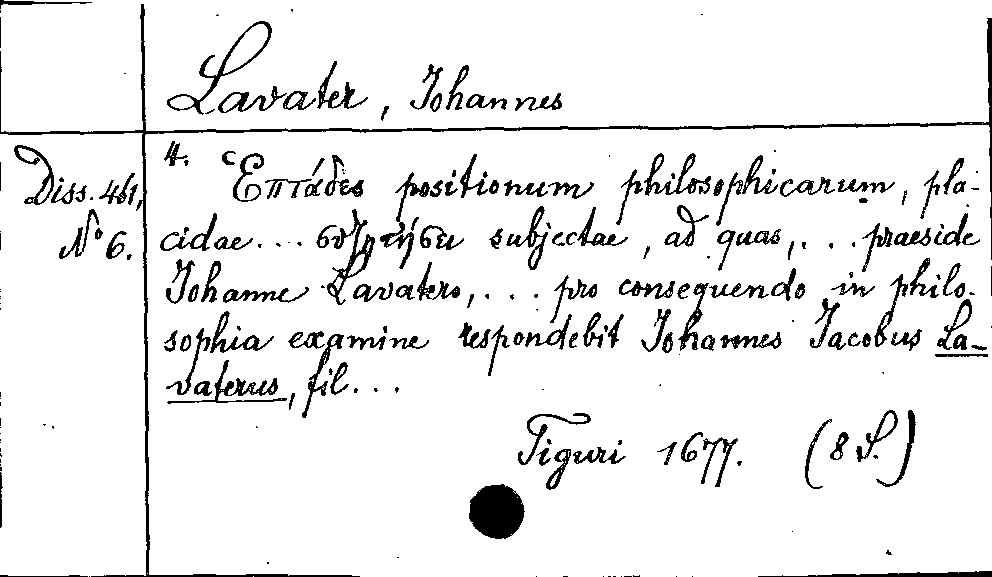 Lavater, Johannes
Diss. 461,
No 6.
4. Ἑπτάδες positionum philosophicarum, pla-
cidae... συζητήσει subjectae, ad quas,... praeside
Johanne Lavatero,... pro consequendo in philo-
sophia examine respondebit Johannes Jacobus La-
vaterus, fil...
Tiguri 1677. (8 S.)